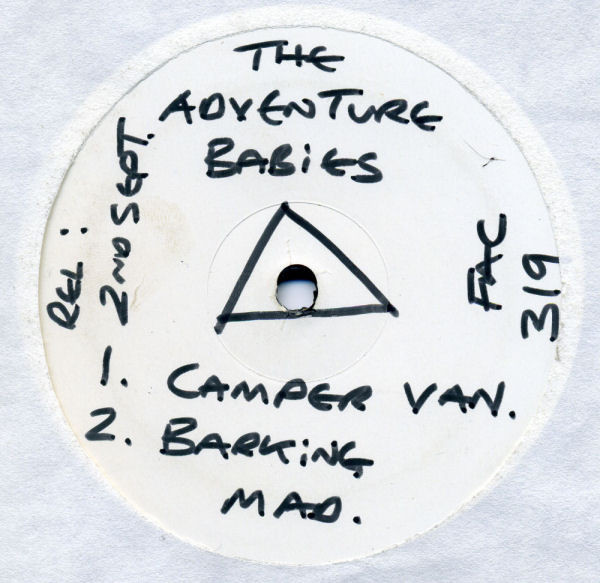 THE
ADVENTURE
BABiES
REL:
2ND SEPT.
FAC
319
1. CAMPER VAN.
2. BARKiNG
MAD.